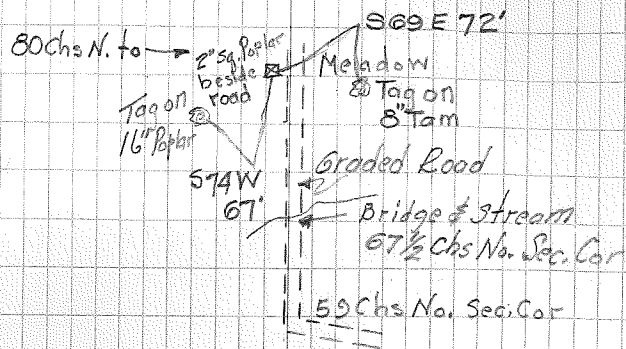 S69E 72'
80 Chs N. to
2" Sq. Poplar
beside
road
Meadow
Tag on
8" Tam
Tag on
16" Poplar
S74W
67'
Graded Road
Bridge & Stream
67½ Chs No. Sec. Cor
59 Chs No. Sec. Cor